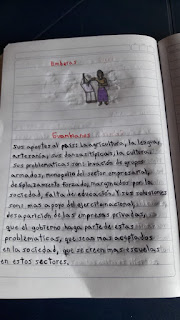 Emberas
Sus aportes al país: la agricultura, la lengua,
artesanía, sus danzas típicas, la cultura.
sus problematicas son: invasión de grupos
armados, monopolio del sector empresarial,
desplazamiento forzado, marginados por la
sociedad, falta de educación. Y sus soluciones
son: mas apoyo del ejercito nacional,
desaparición de las empresas privadas,
que el gobierno haga parte de estas
problematicas, que sean mas aceptados
en la sociedad, que se creen mas escuelas
en estos sectores.